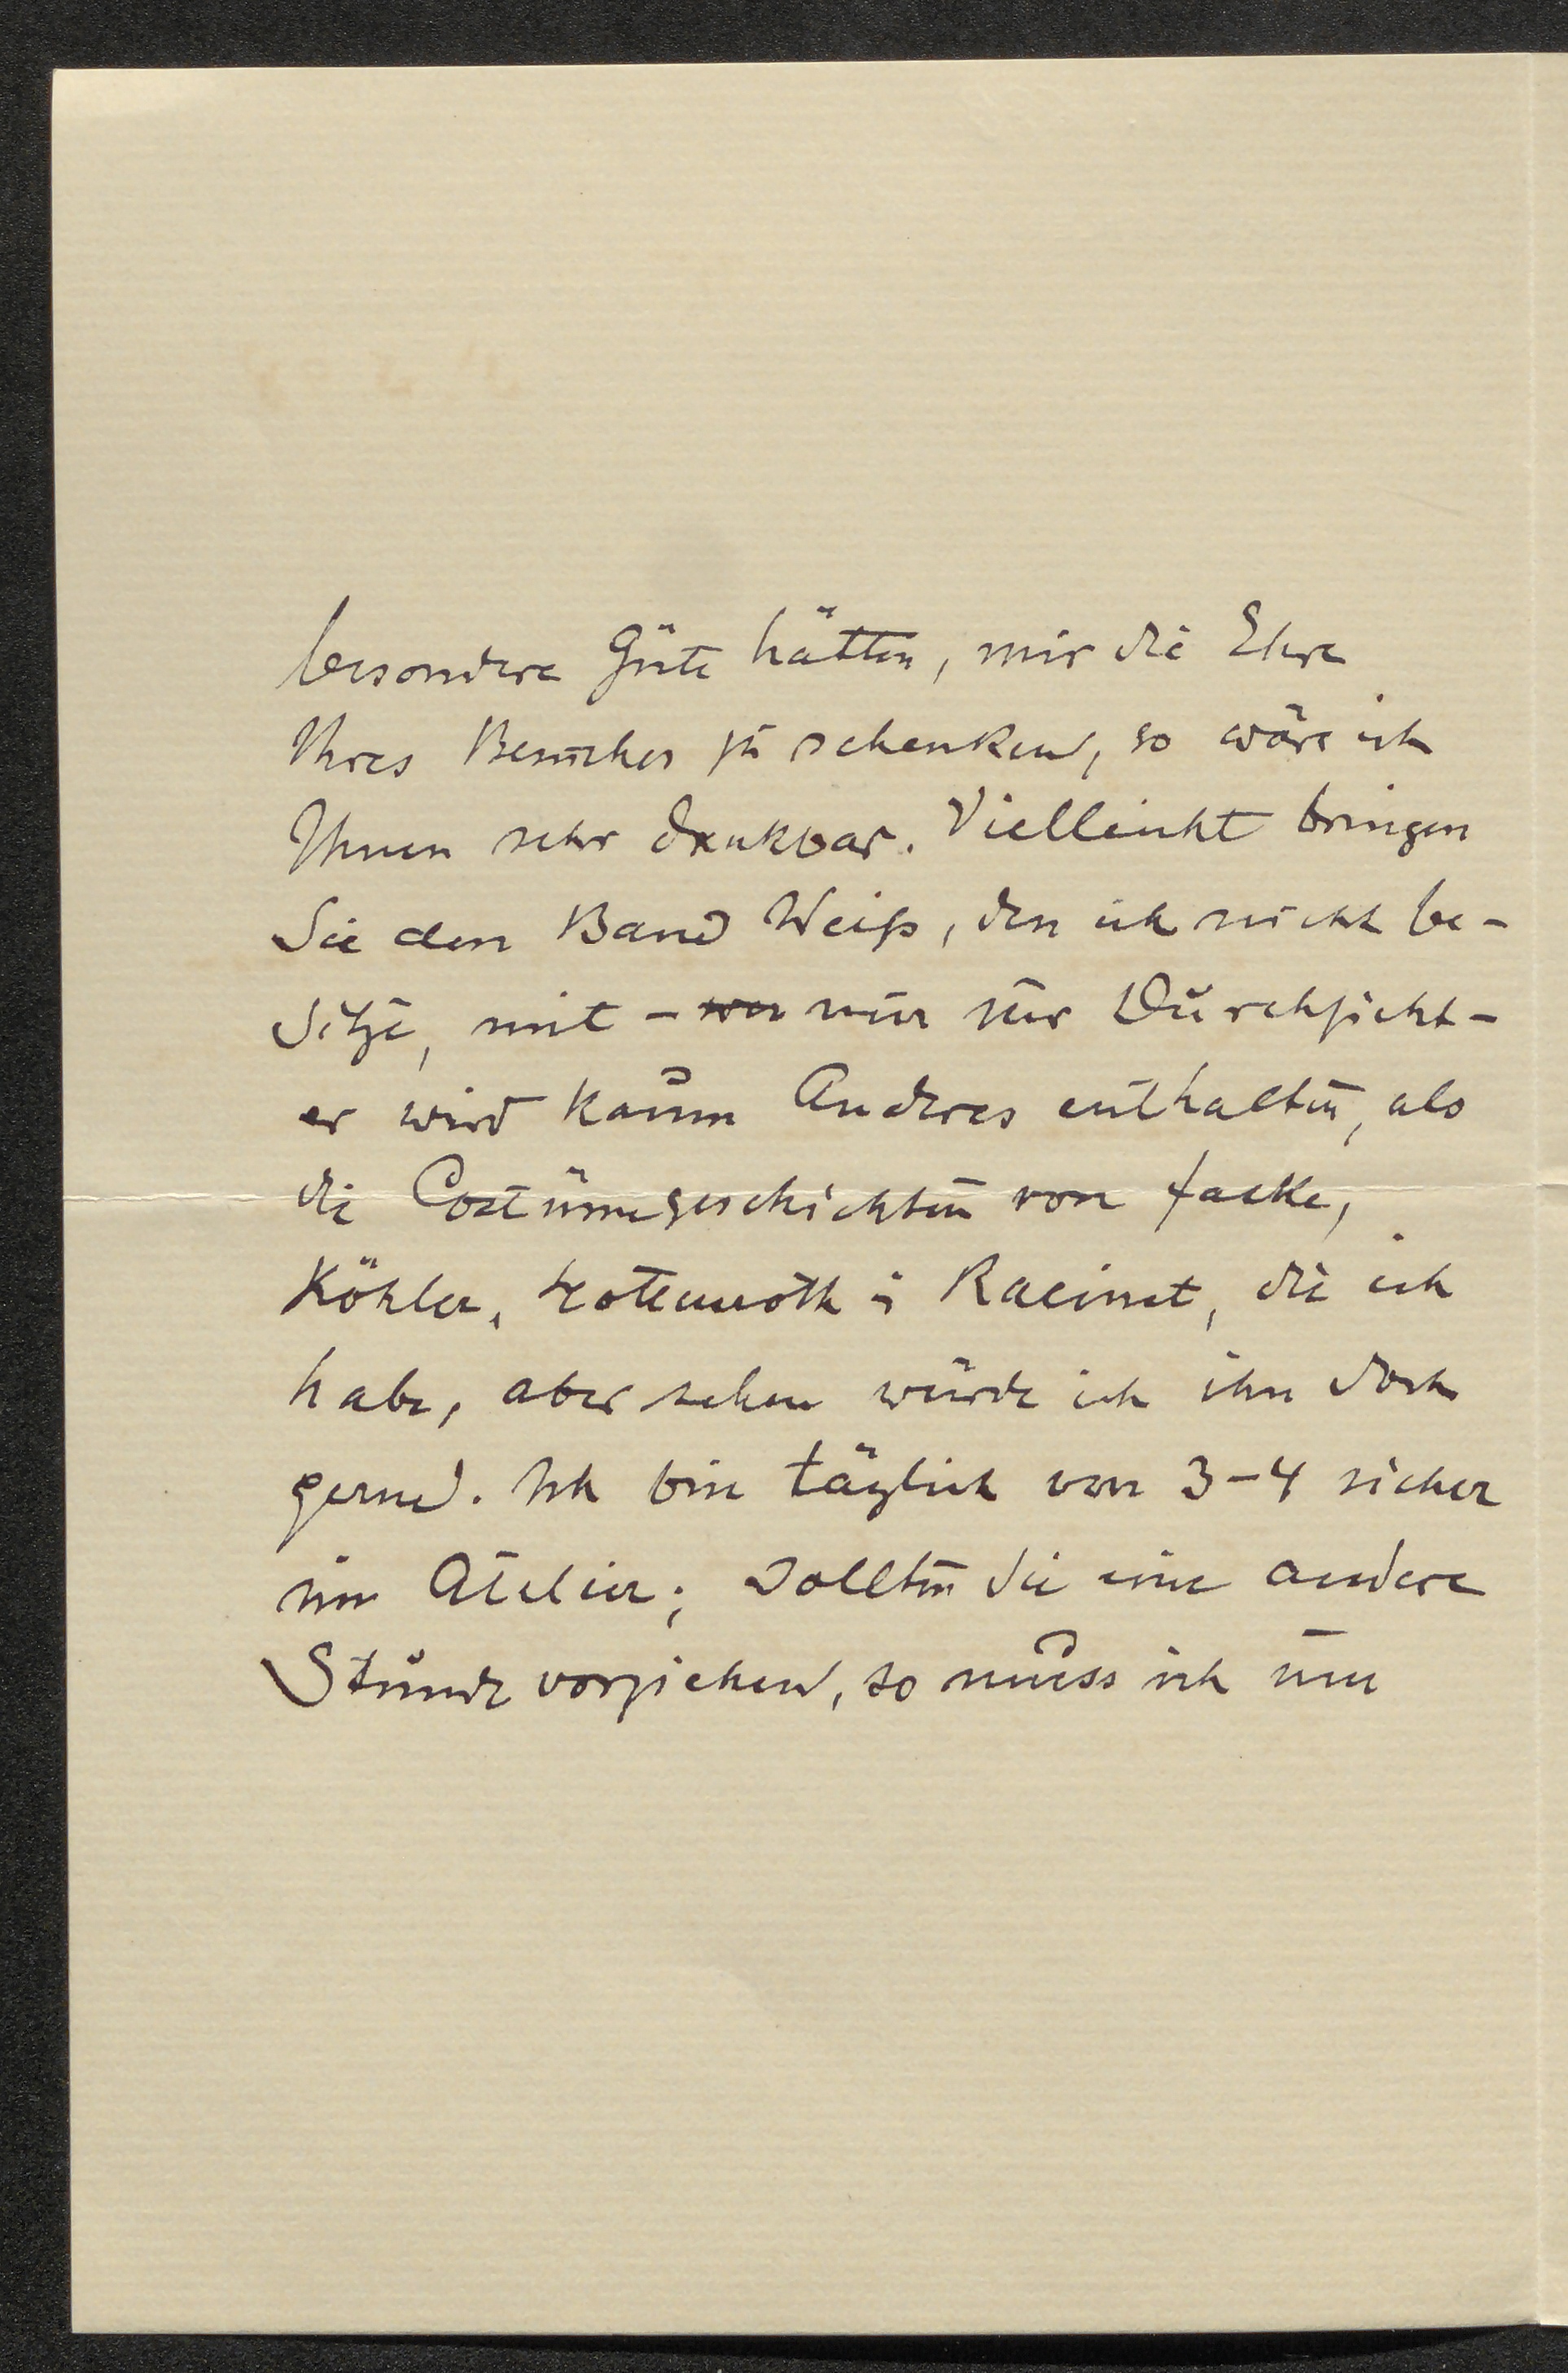 besondere Güte hätten, mir die Ehre
Ihres Besuches zu schenken, so wäre ich
Ihnen sehr dankbar. Vielleicht bringen
Sie den Band Weiß, den ich nicht be-
sitze, mit - nur zur Durchsicht -
er wird kaum Anderes enthalten, als
die Costümgeschichten von Falke,
Köhler, Hottenroth & Racinet, die ich
habe, aber sehen würde ich ihn doch
gerne. Ich bin täglich von 3-4 sicher
im Atelier; sollten Sie eine andere
Stunde vorziehen, so muss ich um